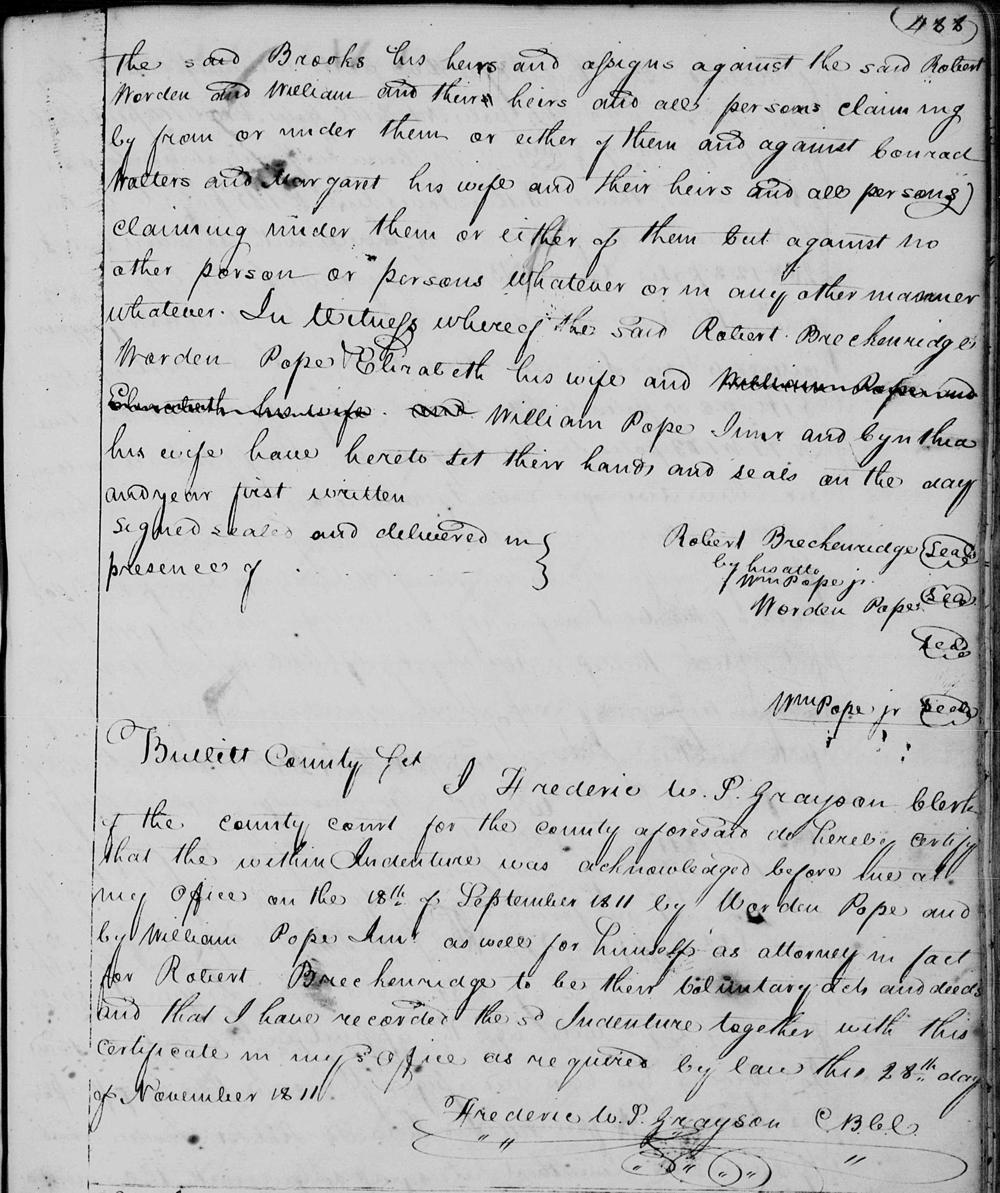 488
the said Brooks his heirs and assigns against the said Robert
Worden and William and their heirs and all persons claiming
by from or under them or either of them and against Conrad
Walters and Margaret his wife and their heirs and all persons
claiming under them or either of them but against no
other person or persons whatever or in any other manner
whatever. In Witness whereof the said Robert Breckenridge
Worden Pope & Elizabeth his wife and William Pope and
Elizabeth his wife. and William Pope Junr and Cynthia
his wife have hereto set their hands and seals on the day
and year first written
signed sealed and delivered in
presence of
Robert Breckenridge Seal
by his atto
Wm Pope jr.
Worden Pope Seal
Seal
Wm Pope jr Seal
Bullitt County Sct
I Frederic W. P. Grayson Clerk
of the county court for the county aforesaid do hereby certify
that the within Indenture was acknowledged before me at
my Office on the 18th of September 1811 by Worden Pope and
by William Pope Junr as well for himself as attorney in fact
for Robert Breckenridge to be their voluntary acts and deeds
and that I have recorded the sd Indenture together with this
certificate in my sd Office as required by law this 28th day
of November 1811.
Frederic W. P. Grayson C B C C